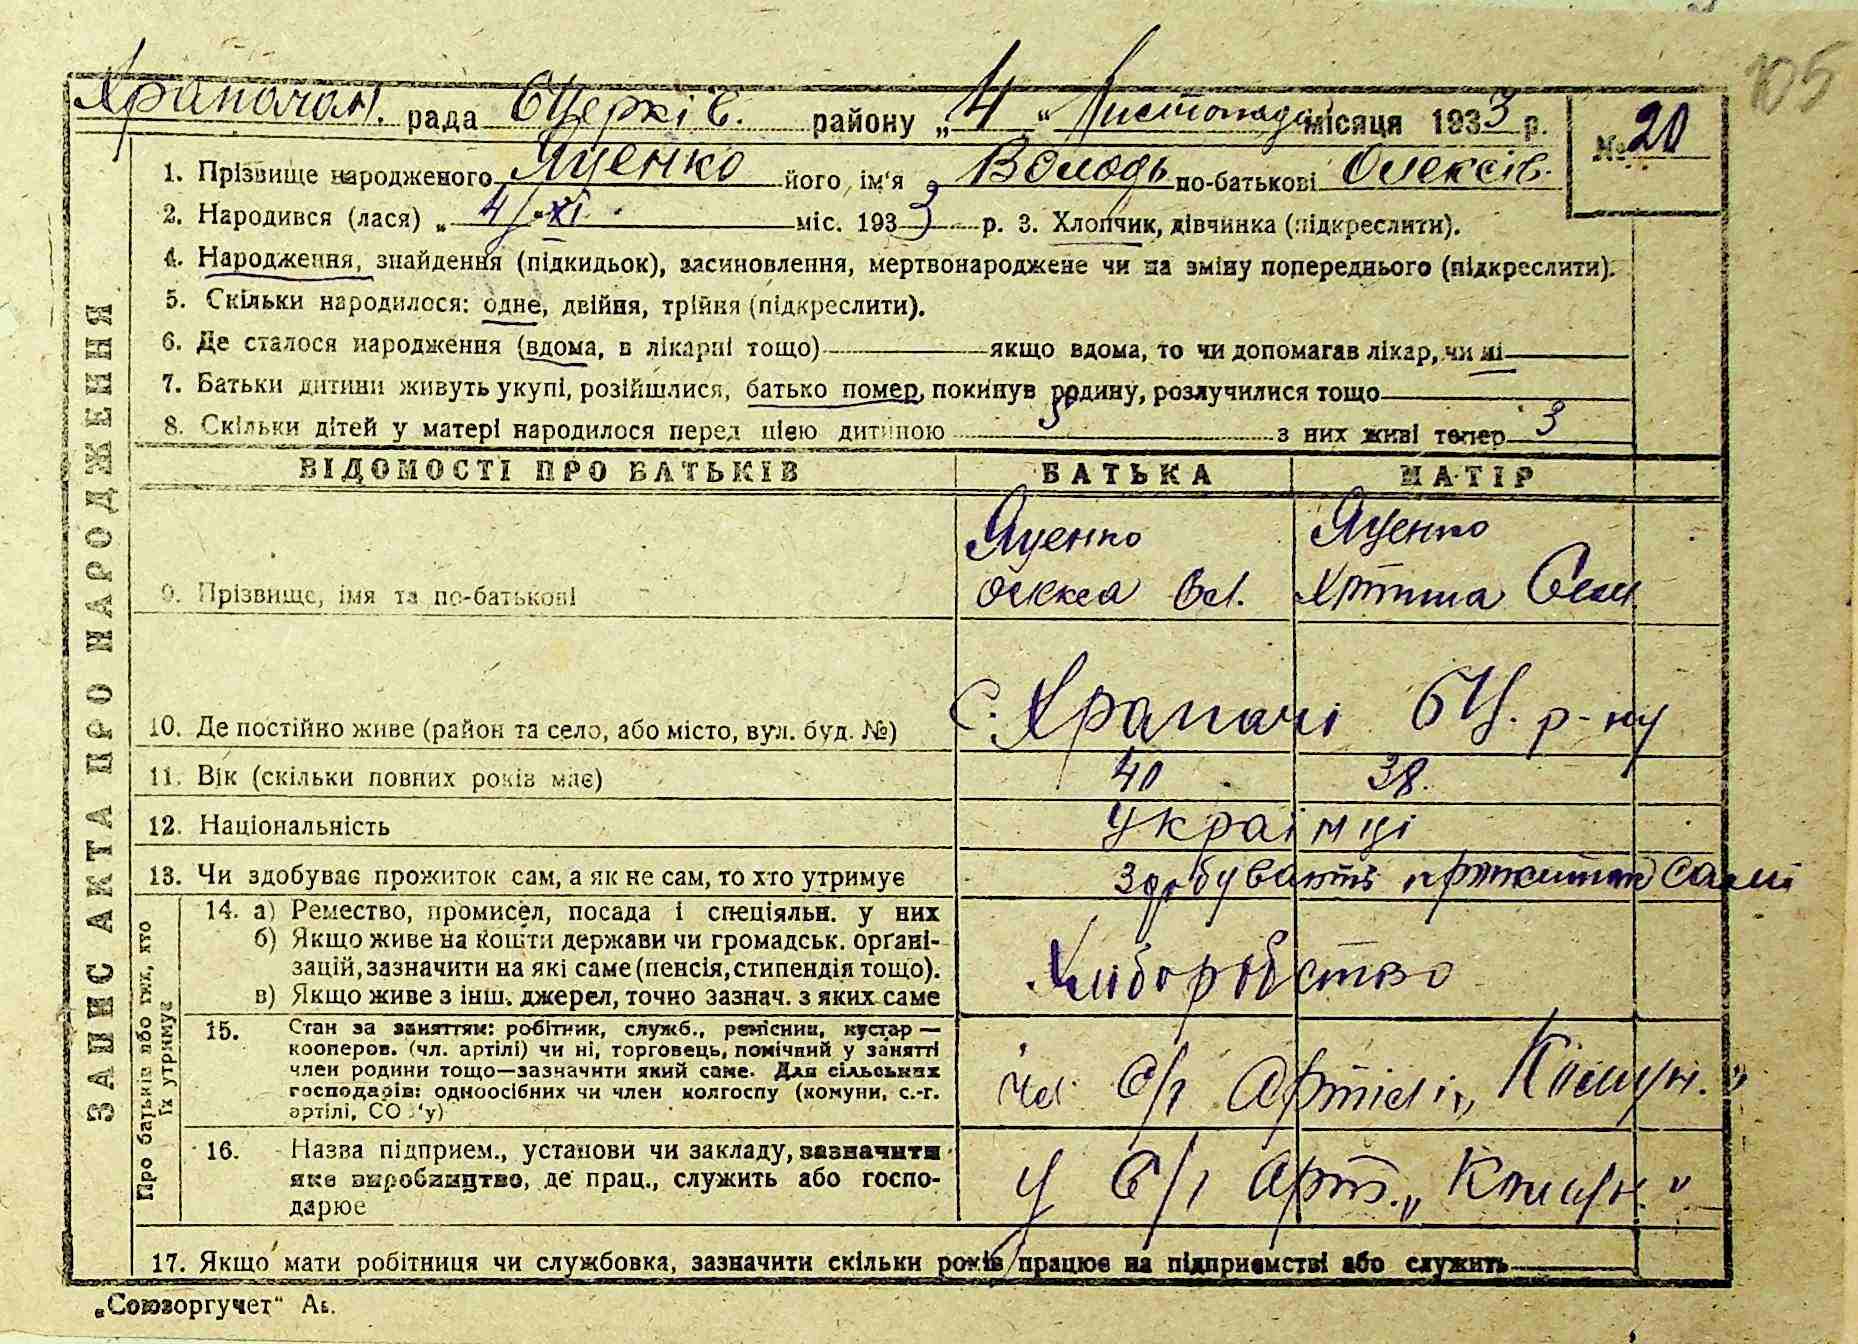 105
Храпачан. рада бЦерків. району „4“ Листопада місяця 1933 р. № 20
1. Прізвище народженого Яценко його ім'я Володь по-батькові Олексів.
2. Народився (лася) „4/XI міс. 1933 р. 3. Хлопчик, дівчинка (підкреслити).
4. Народження, знайдення (підкидьок), засиновлення, мертвонароджене чи на зміну попереднього (підкреслити).
5. Скільки народилося: одне, двійня, трійня (підкреслити).
6. Де сталося народження (вдома, в лікарні тощо) якщо вдома, то чи допомагав лікар, чи ні
7. Батьки дитини живуть укупі, розійшлися, батько помер, покинув родину, розлучилися тощо
8. Скільки дітей у матері народилося перед цією дитиною 3 з них живі тепер 3
ВІДОМОСТІ ПРО БАТЬКІВ БАТЬКА МАТІР
9. Прізвище, імя та по-батькові
Яценко
Яценко
10. Де постійно живе (район та село, або місто, вул. буд. №) с. Храпачі бЦ. р-ну
11. Вік (скільки повних років має) 40 38.
12. Національність Українці
13. Чи здобуває прожиток сам, а як не сам, то хто утримує здобувають прожиток самі
14. а) Ремество, промисел, посада і спеціяльн. у них
б) Якщо живе на кошти держави чи громадськ. орґані-
зацій, зазначити на які саме (пенсія, стипендія тощо).
в) Якщо живе з інш. джерел, точно зазнач. з яких саме
Хліборобство
15. Стан за заняттям: робітник, служб., ремісник, кустар —
кооперов. (чл. артілі) чи ні, торговець, помічний у занятті
член родини тощо—зазначити який саме. Для сільських
господарів: одноосібних чи член колгоспу (комуни, с.-г.
артілі, СО
чл с/г Артілі „Комун.“
16. Назва підприєм., установи чи закладу, зазначити
яке виробництво, де прац., служить або госпо-
дарює
у с/г арт. „Комун.“
17. Якщо мати робітниця чи службовка, зазначити скільки років працює на підприємстві або служить
ЗАПИС АКТА ПРО НАРОДЖЕННЯ
Про батьків або тих, хто
їх утримує
„Союзоргучет“